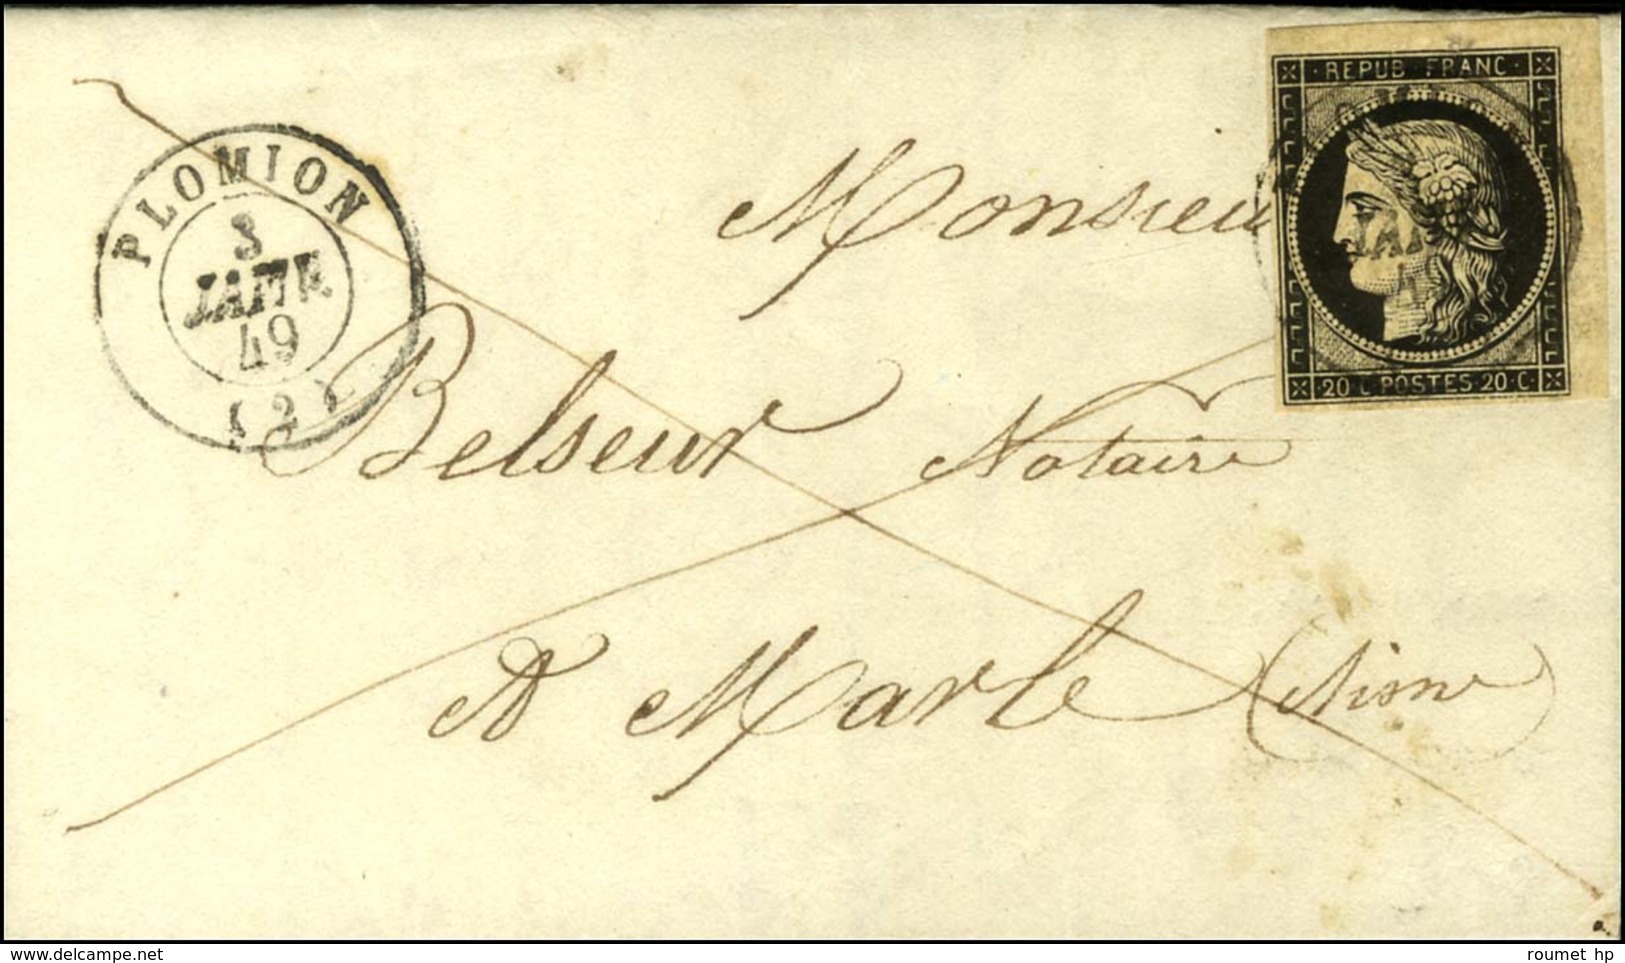 PLOMION
3
JANV.
49
(2)
REPUB · FRANC ·
20 · C · POSTES · 20 · C ·
JAN
4
Monsieu
Belseur Notaire
A Marle (Aisne)
www.delcampe.net
roumet hp